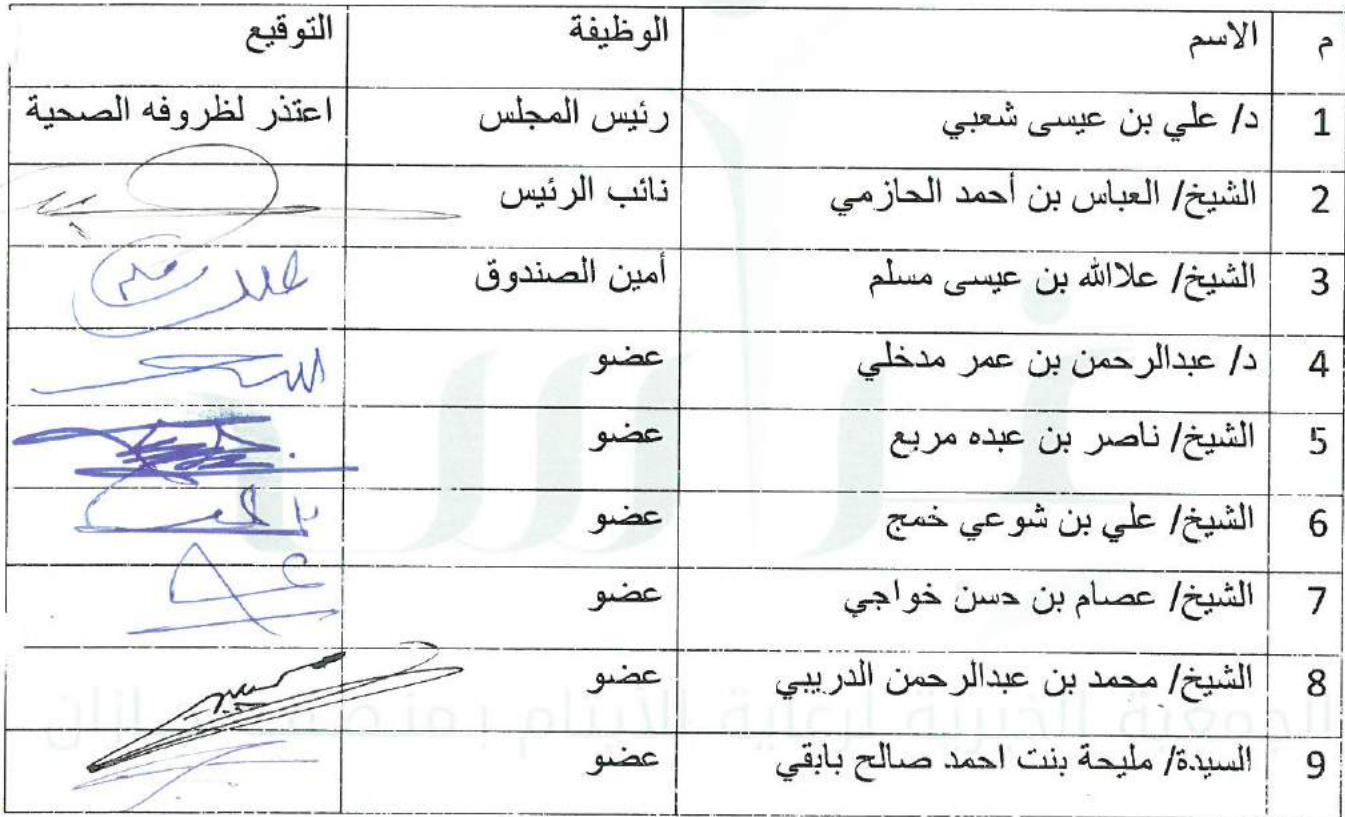 م الاسم الوظيفة التوقيع
1 د/ علي بن عيسى شعبي رئيس المجلس اعتذر لظروفه الصحية
2 الشيخ/ العباس بن أحمد الحازمي نائب الرئيس
3 الشيخ/ علاالله بن عيسى مسلم أمين الصندوق
4 د/ عبدالرحمن بن عمر مدخلي عضو
5 الشيخ/ ناصر بن عبده مربع عضو
6 الشيخ/ علي بن شوعي خمج عضو
7 الشيخ/ عصام بن حسن خواجي عضو
8 الشيخ/ محمد بن عبدالرحمن الدريبي عضو
9 السيدة/ مليحة بنت احمد صالح بابقي عضو